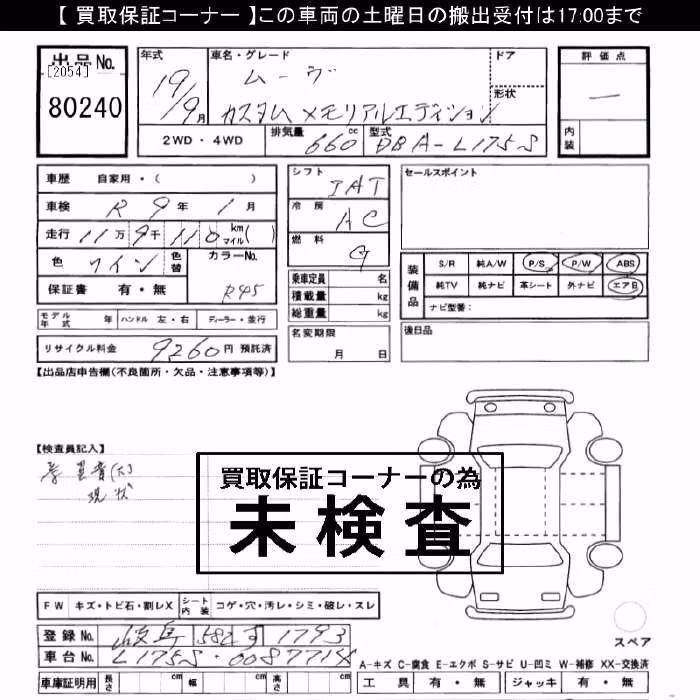 【 買取保証コーナー 】この車両の土曜日の搬出受付は17:00まで
出品No.
[2054]
80240
年式
19/9月
車名・グレード
ムーヴ
カスタム メモリアルエディション
ドア
形状
2WD・4WD
排気量 660 cc
型式 DBA-L175S
評価点
―
内装
車歴 自家用・( )
車検 R 9年 1月
走行 11万 9千 110 km マイル( )
色 ワイン 色替
カラーNo. R45
保証書 有・無
モデル年式 年 ハンドル 左・右 ディーラー・並行
リサイクル料金 9260円 預託済
シフト IAT
冷房 AC
燃料 G
乗車定員 名
積載量 kg
総重量 kg
名変期限
月 日
セールスポイント
装備品
S/R 純A/W P/S P/W ABS
純TV 純ナビ 革シート 外ナビ エアB
ナビ型番:
後日品
【出品店申告欄(不良箇所・欠品・注意事項等)】
【検査員記入】
現状
買取保証コーナーの為
未検査
FW キズ・トビ石・割レX
シート内装 コゲ・穴・汚レ・シミ・破レ・スレ
登録No. 岐阜 582 す 1793
車台No. L175S-0087715
車庫証明用 長さ cm 幅 cm 高さ cm
スペア
A-キズ C-腐食 E-エクボ S-サビ U-凹ミ W-補修 XX-交換済
工具 有・無 ジャッキ 有・無